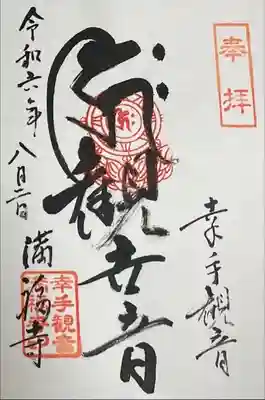 奉拝
幸手観音
観世音
令和六年八月二日
満福寺
幸手観音